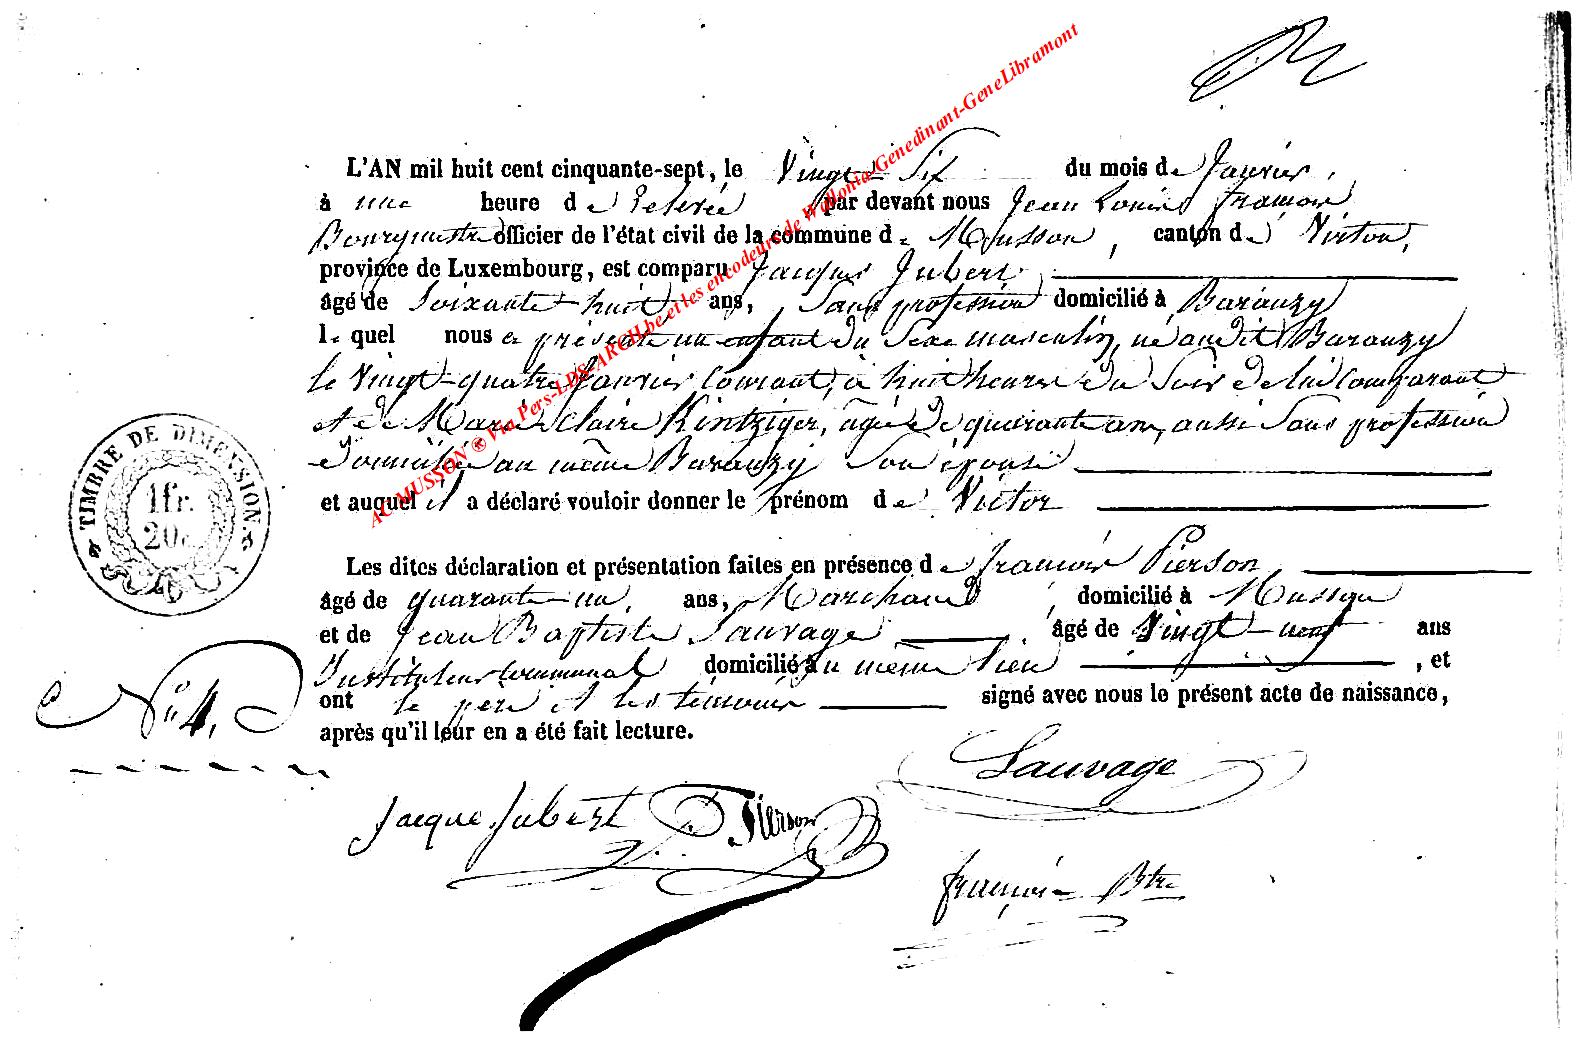 L'AN mil huit cent cinquante-sept, le Vingt-Six du mois de Janvier,
à une heure de relevée par devant nous Jean Louis François
Bourgmestre officier de l'état civil de la commune de Musson, canton de Virton,
province de Luxembourg, est comparu Jacques Jubert
âgé de Soixante-huit ans, Sans profession domicilié à Baranzy
lequel nous a présenté un enfant du Sexe masculin, né audit Baranzy
le Vingt-quatre Janvier Courant, à huit heures du Soir de lui Comparant
et de Marie Claire Kintziger, âgée de quarante ans, aussi Sans profession
domiciliée au même Baranzy Son épouse
et auquel il a déclaré vouloir donner le prénom de Victor
Les dites déclaration et présentation faites en présence de François Pierson
âgé de quarante-un, ans, Marchand, domicilié à Musson
et de Jean Baptiste Sauvage, âgé de Vingt-neuf ans
Instituteur Communal domicilié au même lieu, et
ont le père et les témoins signé avec nous le présent acte de naissance,
après qu'il leur en a été fait lecture.
TIMBRE DE DIMENSION.
1fr.
20c
N° 4.
Sauvage
Jacque Jubert Pierson
François Btre
AC MUSSON ® Via Pers-LDS-ARCH.be et les encodeurs de Wallonia/Genedinant-GeneLibramont